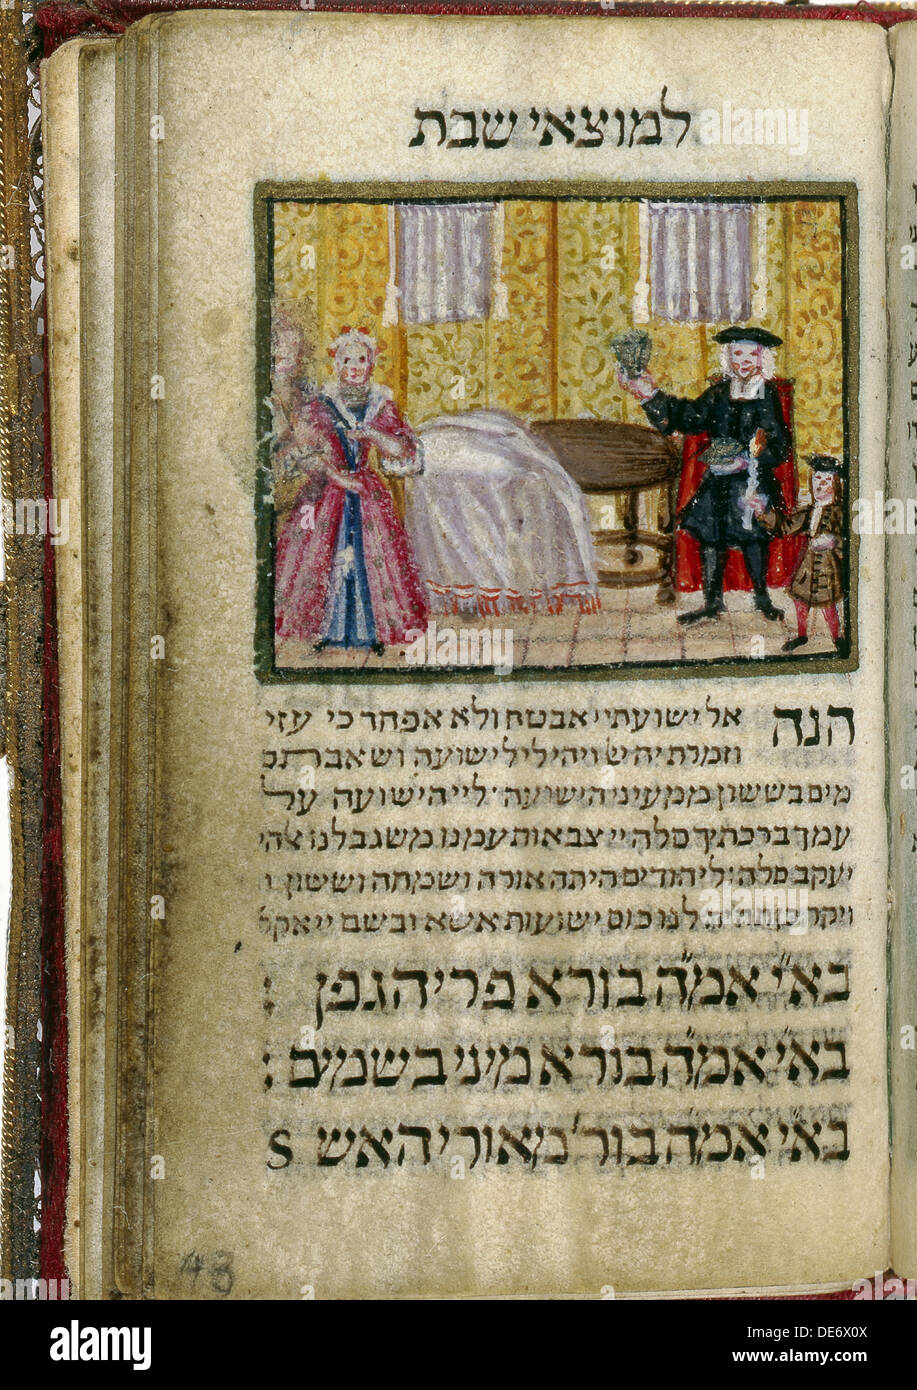 למוצאי שבת
הנה אל ישועתי אבטח ולא אפחד כי עזי
וזמרת יה יי ויהי לי לישועה ושאבתם
מים בששון ממעיני הישועה׃ ליי הישועה על
עמך ברכתיך סלה יי צבאות עמנו משגב לנו אלהי
יעקב סלה׃ ליהודים היתה אורה ושמחה וששון ו
ויקר כן תהיה לנו כוס ישועות אשא ובשם יי אקר
בא״י אמ״ה בורא פרי הגפן ׃
בא״י אמ״ה בורא מיני בשמים ׃
בא״י אמ״ה בור׳ מאורי האש S
48
alamy
Image ID: DE6X0X
www.alamy.com